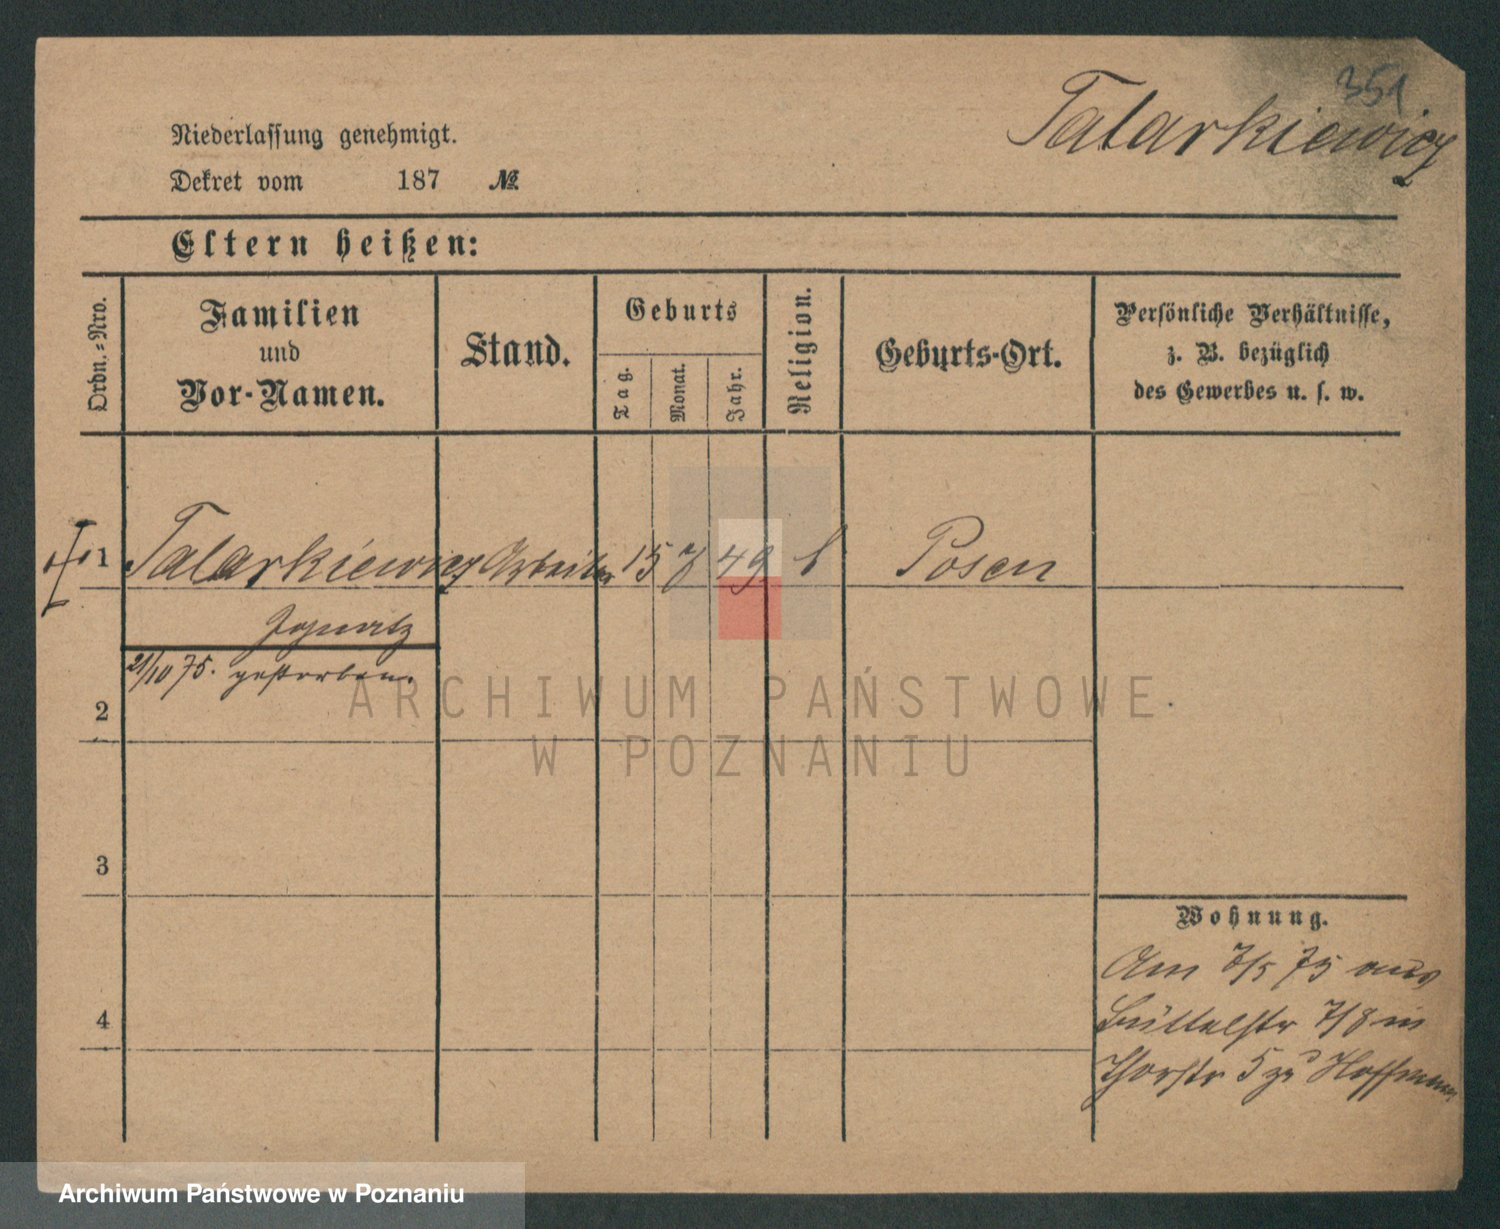 351
Talarkiewicz
Niederlassung genehmigt.
Dekret vom 187 №
Eltern heißen:
Ordn.-Nro.
Familien
und
Vor-Namen.
Stand.
Geburts
Tag.
Monat.
Jahr.
Religion.
Geburts-Ort.
Persönliche Verhältnisse,
z. B. bezüglich
des Gewerbes u. s. w.
1 Talarkiewicz Arbeiter 15 7 49 k Posen
Ignatz
21/10 75. gestorben.
2
3
4
Wohnung.
Am 7/5 75 aus
Büttelstr 7/8 in
Thorstr 5 zu Hoffmann
ARCHIWUM PAŃSTWOWE
W POZNANIU
Archiwum Państwowe w Poznaniu